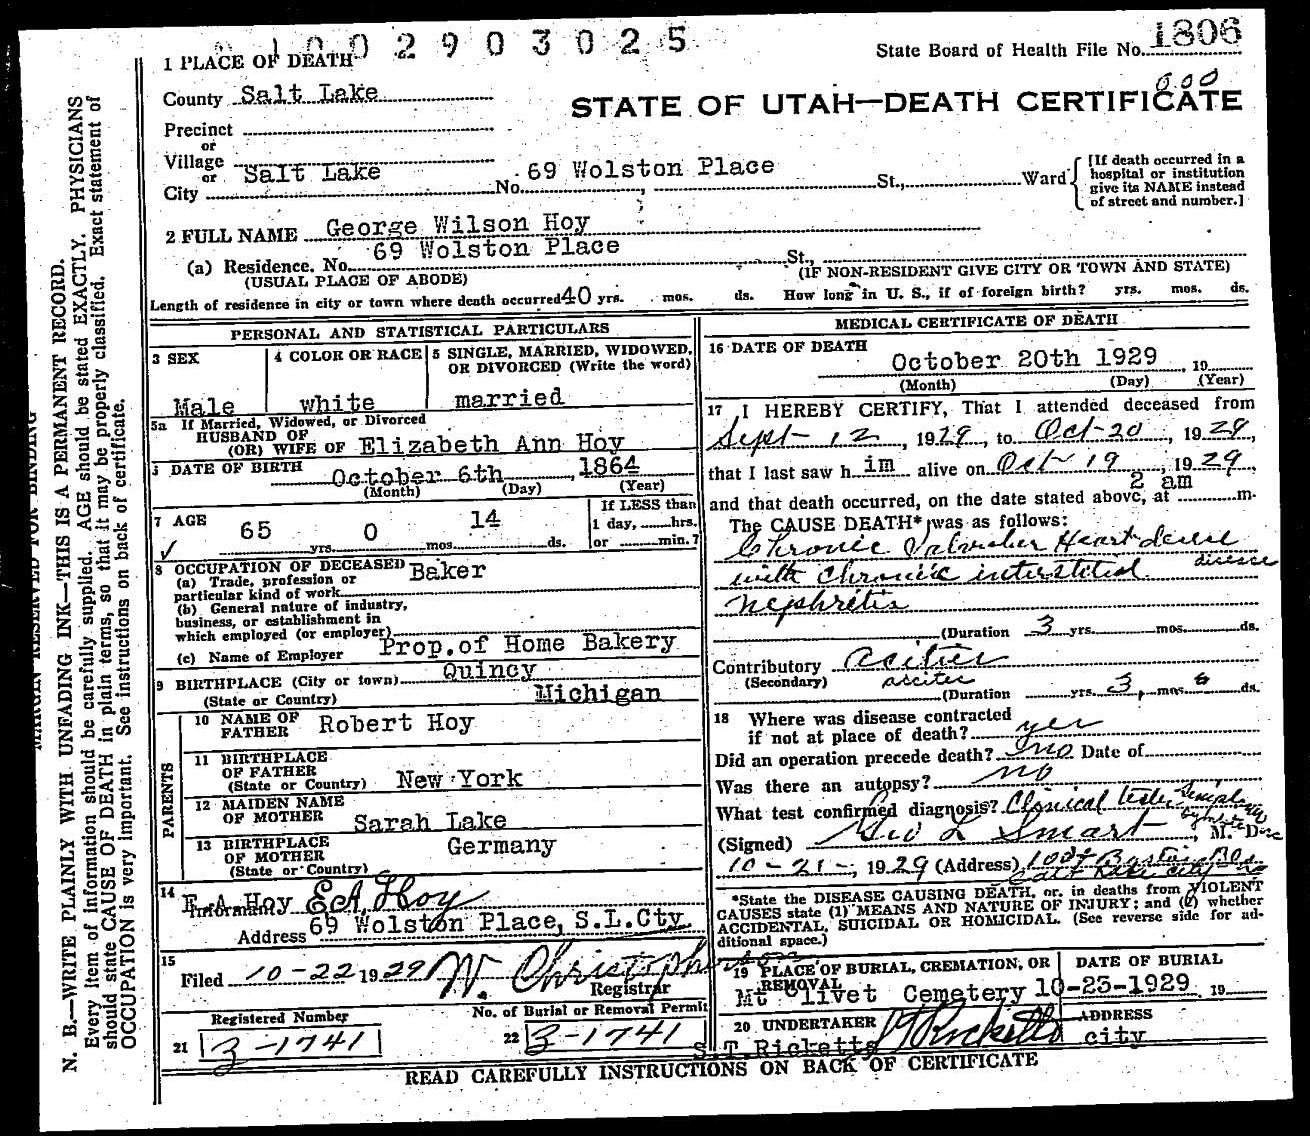 1002903025
State Board of Health File No. 1806
000
1 PLACE OF DEATH
County Salt Lake
STATE OF UTAH—DEATH CERTIFICATE
Precinct
or
Village
or
City Salt Lake No. 69 Wolston Place St., Ward
[If death occurred in a
hospital or institution
give its NAME instead
of street and number.]
2 FULL NAME George Wilson Hoy
(a) Residence. No. 69 Wolston Place St.,
(USUAL PLACE OF ABODE) (IF NON-RESIDENT GIVE CITY OR TOWN AND STATE)
Length of residence in city or town where death occurred 40 yrs. mos. ds. How long in U. S., if of foreign birth? yrs. mos. ds.
PERSONAL AND STATISTICAL PARTICULARS
3 SEX
Male
4 COLOR OR RACE
white
5 SINGLE, MARRIED, WIDOWED,
OR DIVORCED (Write the word)
married
5a If Married, Widowed, or Divorced
HUSBAND OF
(OR) WIFE OF Elizabeth Ann Hoy
DATE OF BIRTH October 6th, 1864
(Month) (Day) (Year)
7 AGE
65 yrs. 0 mos. 14 ds.
If LESS than
1 day, hrs.
or min.?
8 OCCUPATION OF DECEASED Baker
(a) Trade, profession or
particular kind of work
(b) General nature of industry,
business, or establishment in
which employed (or employer)
(c) Name of Employer Prop.of Home Bakery
9 BIRTHPLACE (City or town) Quincy
(State or Country) Michigan
PARENTS
10 NAME OF
FATHER Robert Hoy
11 BIRTHPLACE
OF FATHER
(State or Country) New York
12 MAIDEN NAME
OF MOTHER Sarah Lake
13 BIRTHPLACE
OF MOTHER Germany
(State or Country)
14
Informant E.A.Hoy E A Hoy
Address 69 Wolston Place, S.L.Cty
15
Filed 10-22 1929 W. Christopherson
Registrar
Registered Number
21 3-1741
No. of Burial or Removal Permit
22 3-1741
MEDICAL CERTIFICATE OF DEATH
16 DATE OF DEATH
October 20th 1929 19
(Month) (Day) (Year)
17 I HEREBY CERTIFY, That I attended deceased from
Sept-12, 1929, to Oct-20, 1929,
that I last saw him alive on Oct-19, 1929,
2 am
and that death occurred, on the date stated above, at m.
The CAUSE DEATH* was as follows:
Chronic Valvular Heart disease
disease
with chronic interstitial
nephritis
(Duration 3 yrs. mos. ds.
Contributory ascites
(Secondary) ascites
(Duration yrs. 3, mos 6 ds.
18 Where was disease contracted
if not at place of death? yes
Did an operation precede death? no Date of
Was there an autopsy? no
What test confirmed diagnosis? Clinical tests
(Signed) Geo L Smart, M. D.
10-21-, 1929 (Address)
Salt Lake City
*State the DISEASE CAUSING DEATH, or, in deaths from VIOLENT
CAUSES state (1) MEANS AND NATURE OF INJURY; and (2) whether
ACCIDENTAL, SUICIDAL OR HOMICIDAL. (See reverse side for ad-
ditional space.)
19 PLACE OF BURIAL, CREMATION, OR
REMOVAL
Mt Olivet Cemetery
DATE OF BURIAL
10-23-1929 19
20 UNDERTAKER
S.T.Ricketts S T Ricketts
ADDRESS
city
READ CAREFULLY INSTRUCTIONS ON BACK OF CERTIFICATE
MARGIN RESERVED FOR BINDING
N. B.—WRITE PLAINLY WITH UNFADING INK—THIS IS A PERMANENT RECORD.
Every item of information should be carefully supplied. AGE should be stated EXACTLY. PHYSICIANS
should state CAUSE OF DEATH in plain terms, so that it may be properly classified. Exact statement of
OCCUPATION is very important. See instructions on back of certificate.